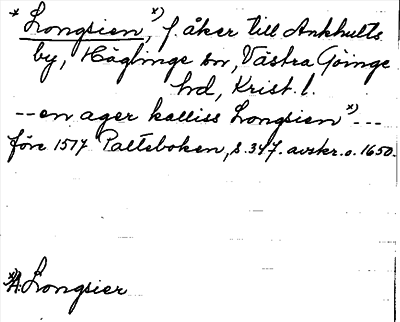 * Longsien, *) f. åker till Ankhults
by, Häglinge sn, Västra Göinge
hd, Krist. l.
-- en ager kalliss Longsien *) ---
före 1517 Palteboken, s. 347. avskr. o. 1650.
*) A. Longsier